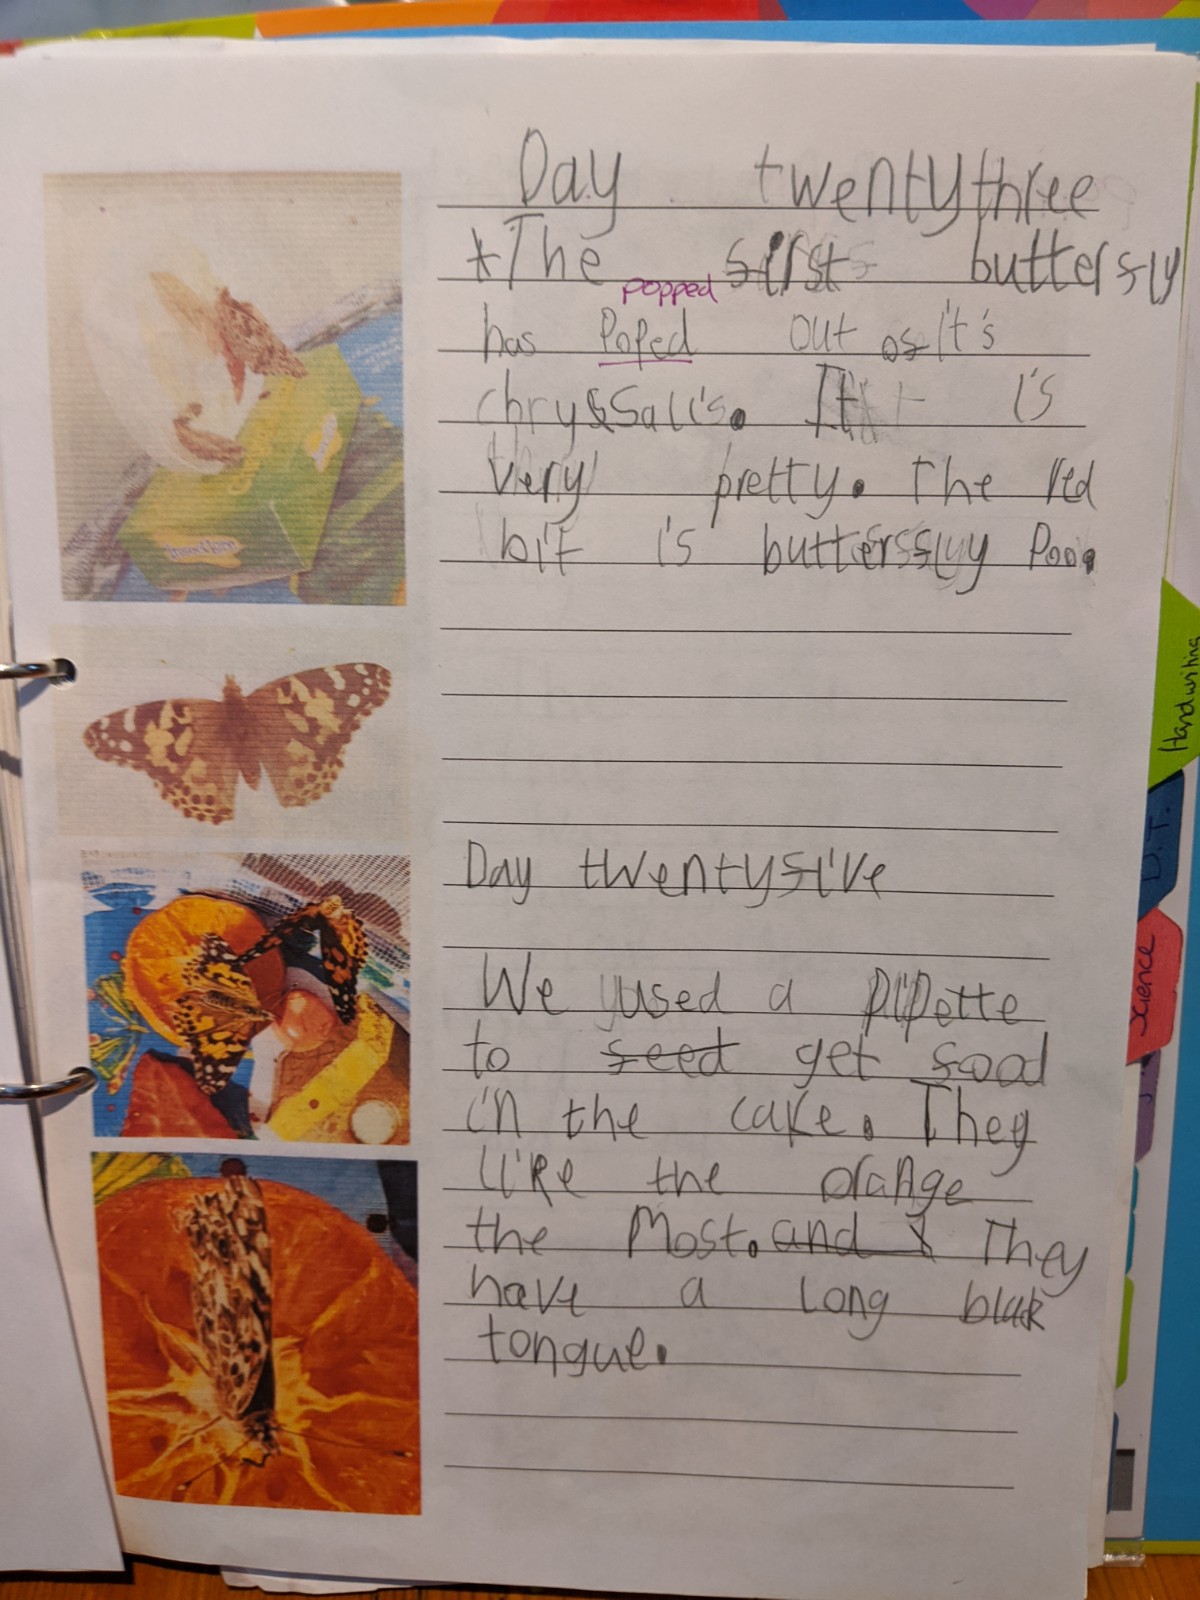 Day twentythree
*The first butterfly
popped
has Poped out of it's
chryssalis. It is
very pretty. The red
bit is butterfluy Poo.
Day twentyfive
We used a pipette
to feed get food
in the cake. They
like the orange
the Most. and I They
have a long black
tongue.
Handwriting
D.T.
Science